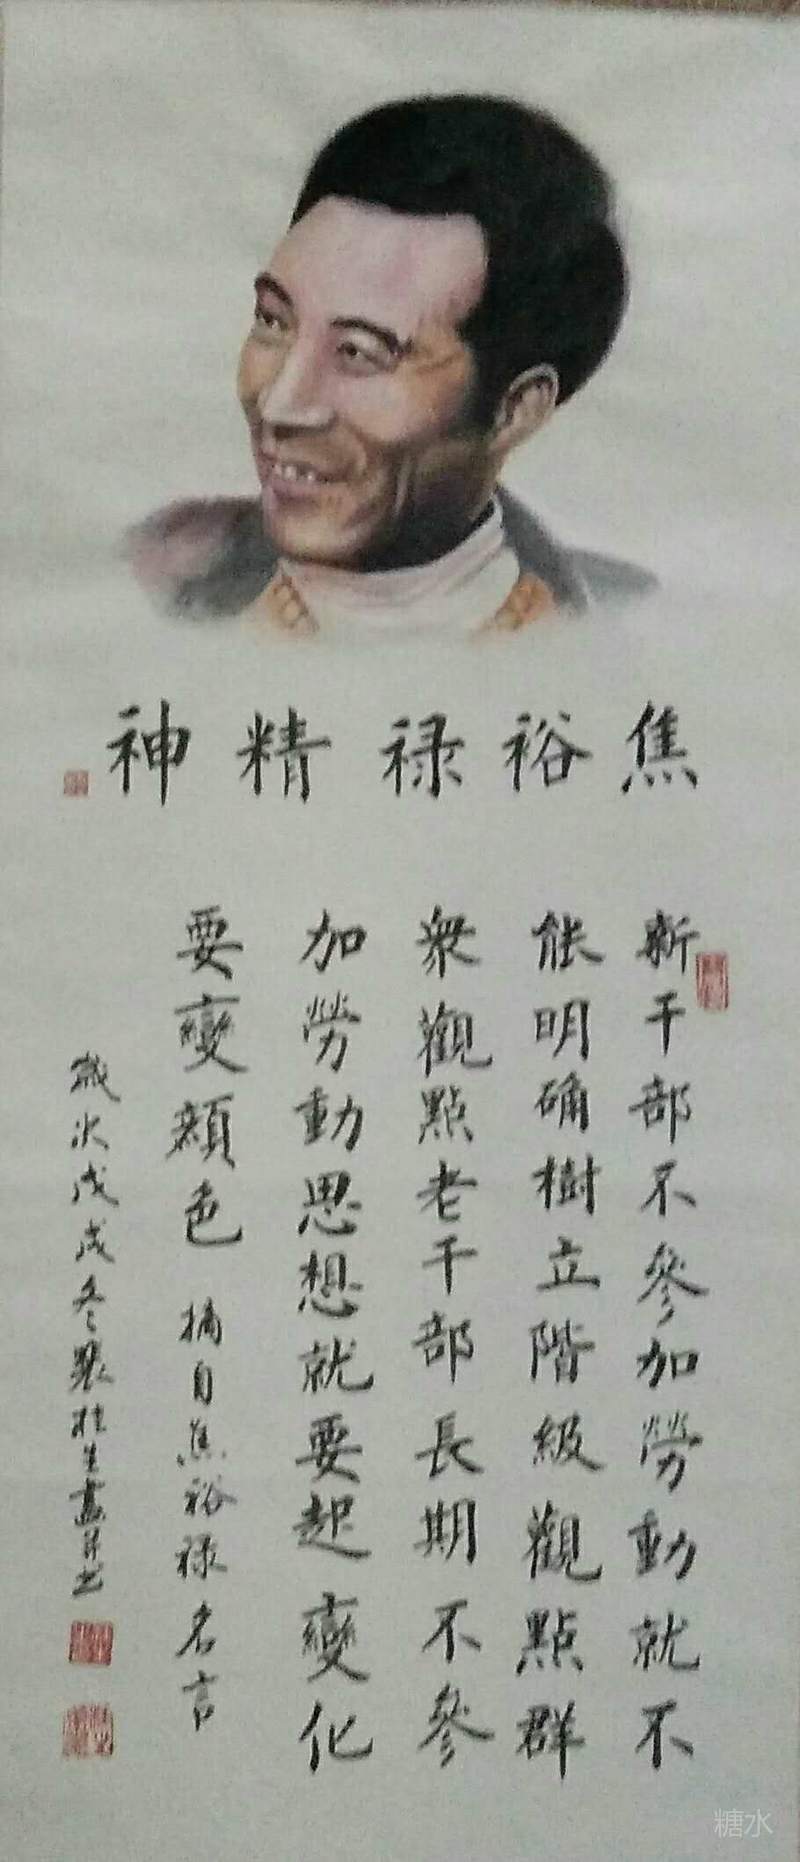 焦裕禄精神
新干部不參加勞動就不
能明确樹立階級觀點群
衆觀點老干部長期不參
加勞動思想就要起變化
要變顔色 摘自焦裕禄名言
歲次戊戌冬 桂生畫并書
糖水